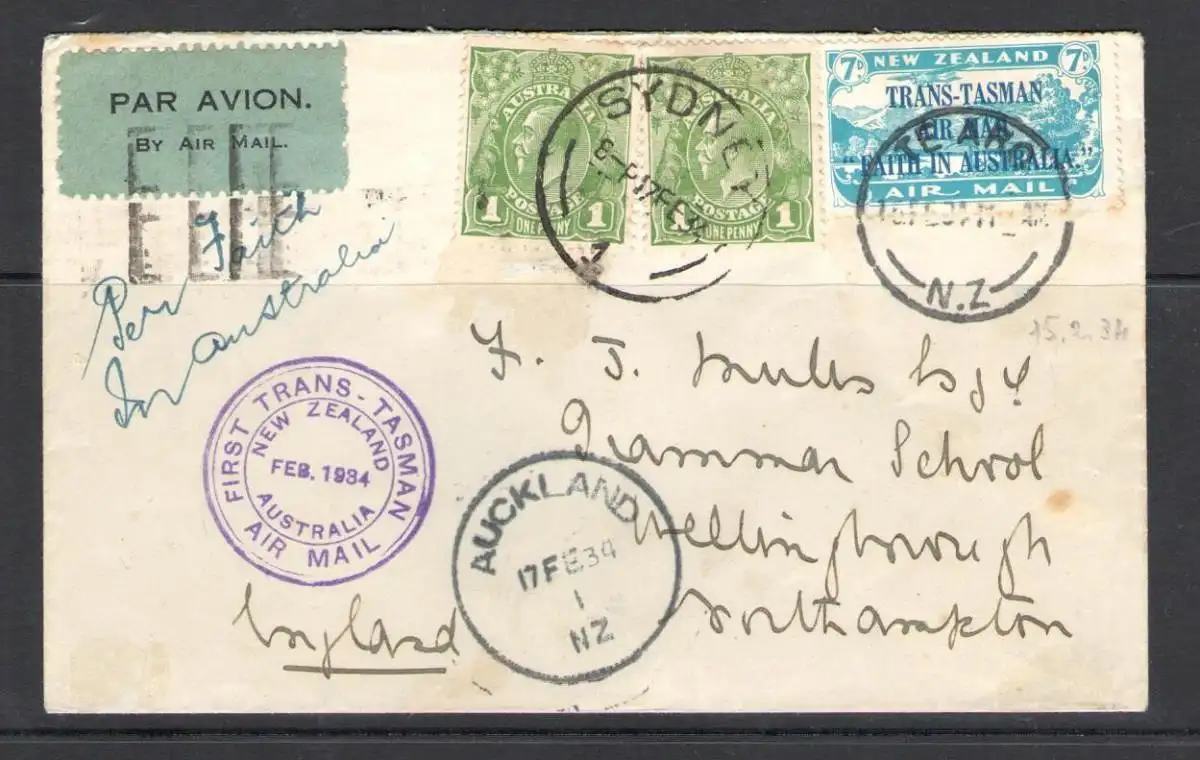 PAR AVION.
BY AIR MAIL.
Per Faith
In Australia
AUSTRALIA
POSTAGE
1
ONE PENNY
AUSTRALIA
POSTAGE
1
ONE PENNY
SYDNEY
17FE34
7d NEW ZEALAND 7d
TRANS-TASMAN
AIR MAIL
"FAITH IN AUSTRALIA."
AIR MAIL
TE ARO
N.Z
15.2.34
F. J. Mulls Esq
Grammar School
Wellingborough
Northampton
England
FIRST TRANS-TASMAN
AIR MAIL
NEW ZEALAND
FEB. 1934
AUSTRALIA
AUCKLAND
17FE34
1
NZ